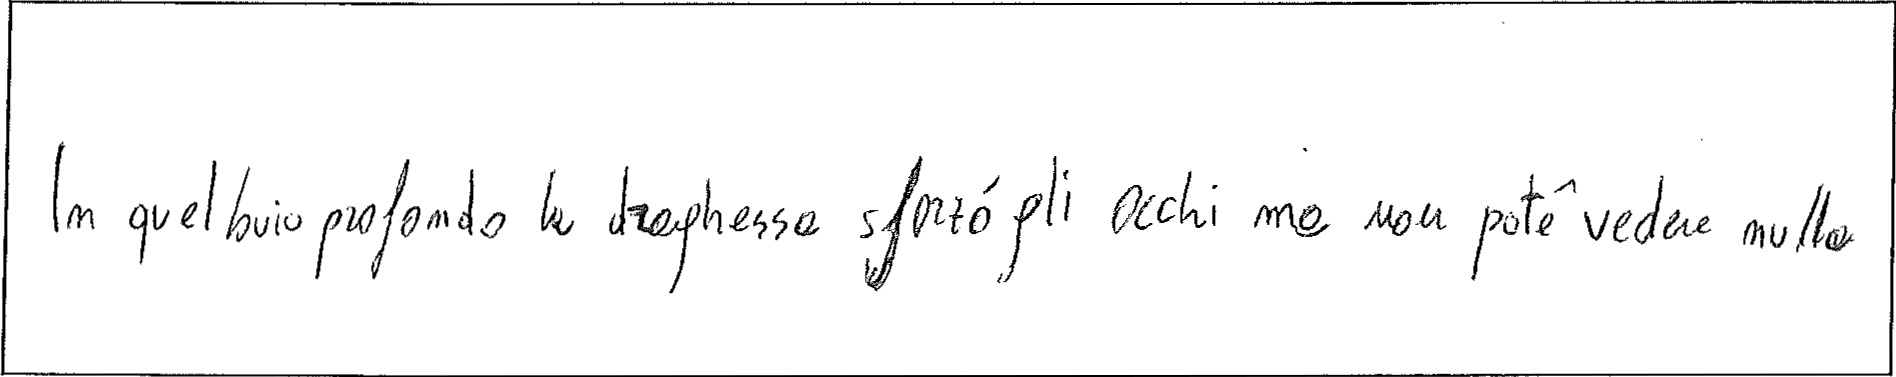 In quel buio profondo la draghessa sforzó gli occhi ma non potê vedere nulla